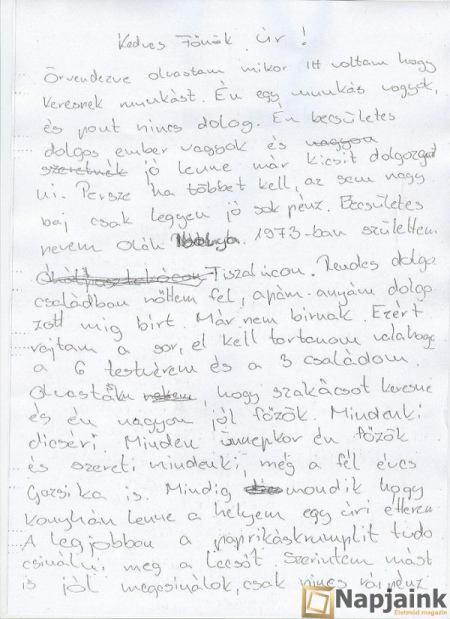 Kedves Főnök úr!
Örvendezve olvastam mikor itt voltam hogy
keresnek munkást. Én egy munkás vagyok,
és pont nincs dolog. Én becsületes
dolgos ember vagyok és nagyon
szeretnék jó lenne már kicsit dolgozgat
ni. Persze ha többet kell, az sem nagy
baj csak legyen jó sok pénz. Becsületes
nevem Oláh 1973-ban születtem
Tiszalúcon. Rendes dolgo
családban nőttem fel, apám-anyám dolgo
zott míg bírt. Már nem bírnak. Ezért
rajtam a sor, el kell tartanom valahogy
a 6 testvérem és a 3 családom.
Olvastám nekem, hogy szakácsot keresne
és én nagyon jól főzök. Mindenki
dicséri. Minden ünnepkor én főzök
és szereti mindenki, még a fél éves
Gazsika is. Mindig mondik hogy
konyhán lenne a helyem egy úri étterem
A legjobban a paprikáskrumplit tudo
csinálni meg a lecsót. Szerintem mást
is jól megcsinálok, csak nincs rá pénz
Napjaink
Életmód magazin